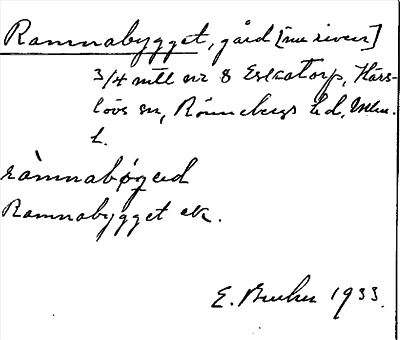 Ramnabygget, gård [nu riven]
3/4 mtl nr 8 Eskatorp, Härs-
lövs sn, Rönnebergs hd, Malm.
L.
ràmnabøgəd
Ramnabygget ek.
E. Bruhn 1933.